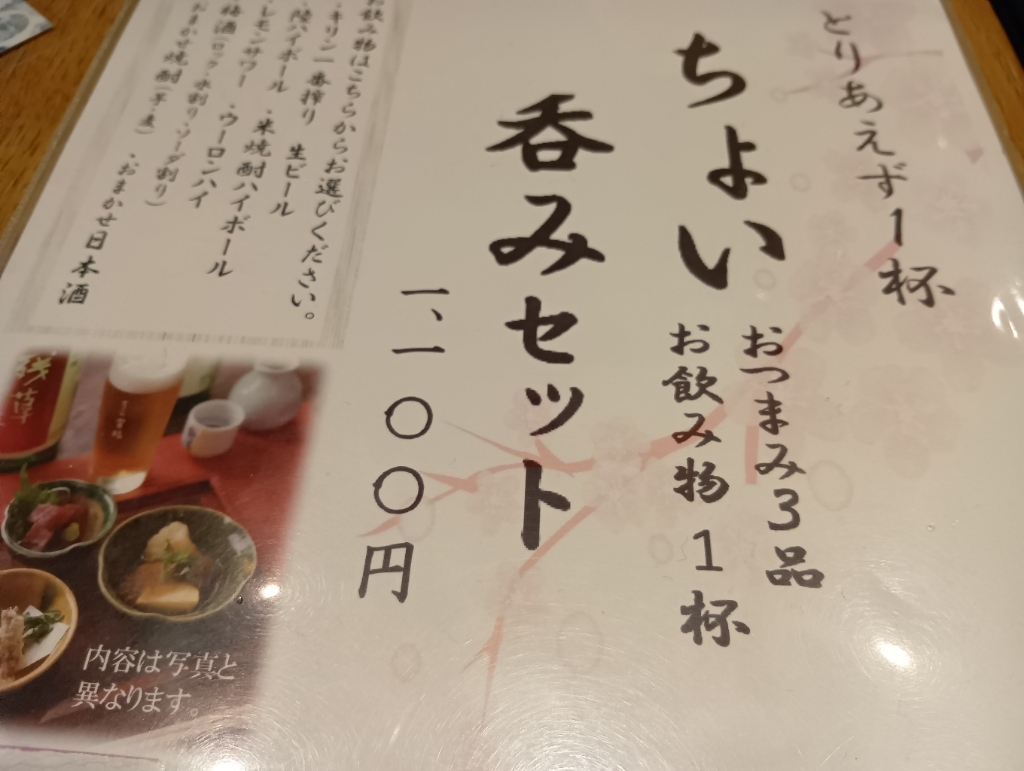 とりあえず1杯
ちょい
呑みセット
おつまみ3品
お飲み物1杯
一、一〇〇円
お飲み物はこちらからお選びください。
・キリン一番搾り 生ビール
・陸ハイボール ・米焼酎ハイボール
・レモンサワー ・ウーロンハイ
梅酒(ロック・水割り・ソーダ割り)
おまかせ焼酎(芋・麦) ・おまかせ日本酒
内容は写真と
異なります。